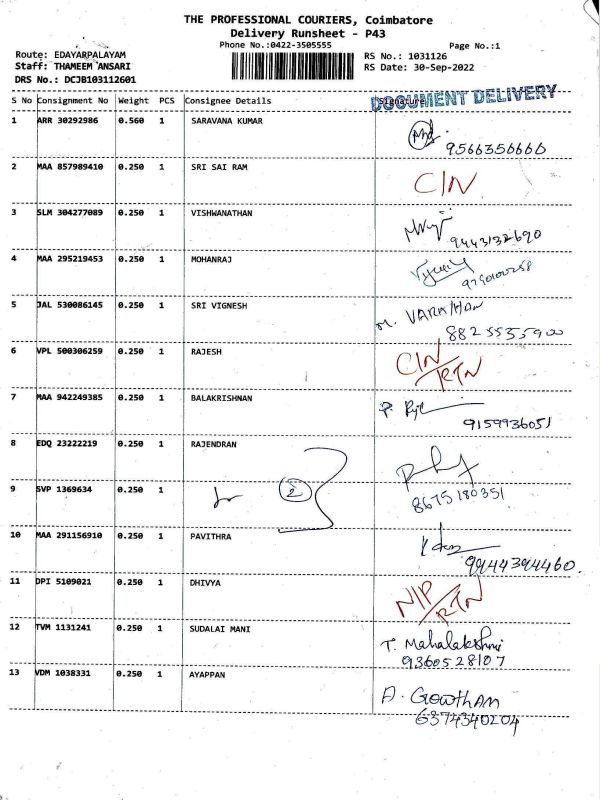 THE PROFESSIONAL COURIERS, Coimbatore
Delivery Runsheet - P43
Phone No.:0422-3505555
Page No.:1
Route: EDAYARPALAYAM
Staff: THAMEEM ANSARI
DRS No.: DCJB103112601
RS No.: 1031126
RS Date: 30-Sep-2022
DOCUMENT DELIVERY
S No Consignment No Weight PCS Consignee Details Signature
1 ARR 30292986 0.560 1 SARAVANA KUMAR
9566356666
2 MAA 857989410 0.250 1 SRI SAI RAM CIN
3 SLM 304277089 0.250 1 VISHWANATHAN
9443132690
4 MAA 295219453 0.250 1 MOHANRAJ
5 JAL 530086145 0.250 1 SRI VIGNESH M. VARATHAN
8825535900
6 VPL 500306259 0.250 1 RAJESH CIN/RTN
7 MAA 942249385 0.250 1 BALAKRISHNAN
9159936051
8 EDQ 23222219 0.250 1 RAJENDRAN
9 SVP 1369634 0.250 1 2
8675180351
10 MAA 291156910 0.250 1 PAVITHRA
9944394460.
11 DPI 5109021 0.250 1 DHIVYA N/P/RTN
12 TVM 1131241 0.250 1 SUDALAI MANI T. Mahalakshmi
9360528107
13 VDM 1038331 0.250 1 AYAPPAN A. GOWTHAM
6374340204